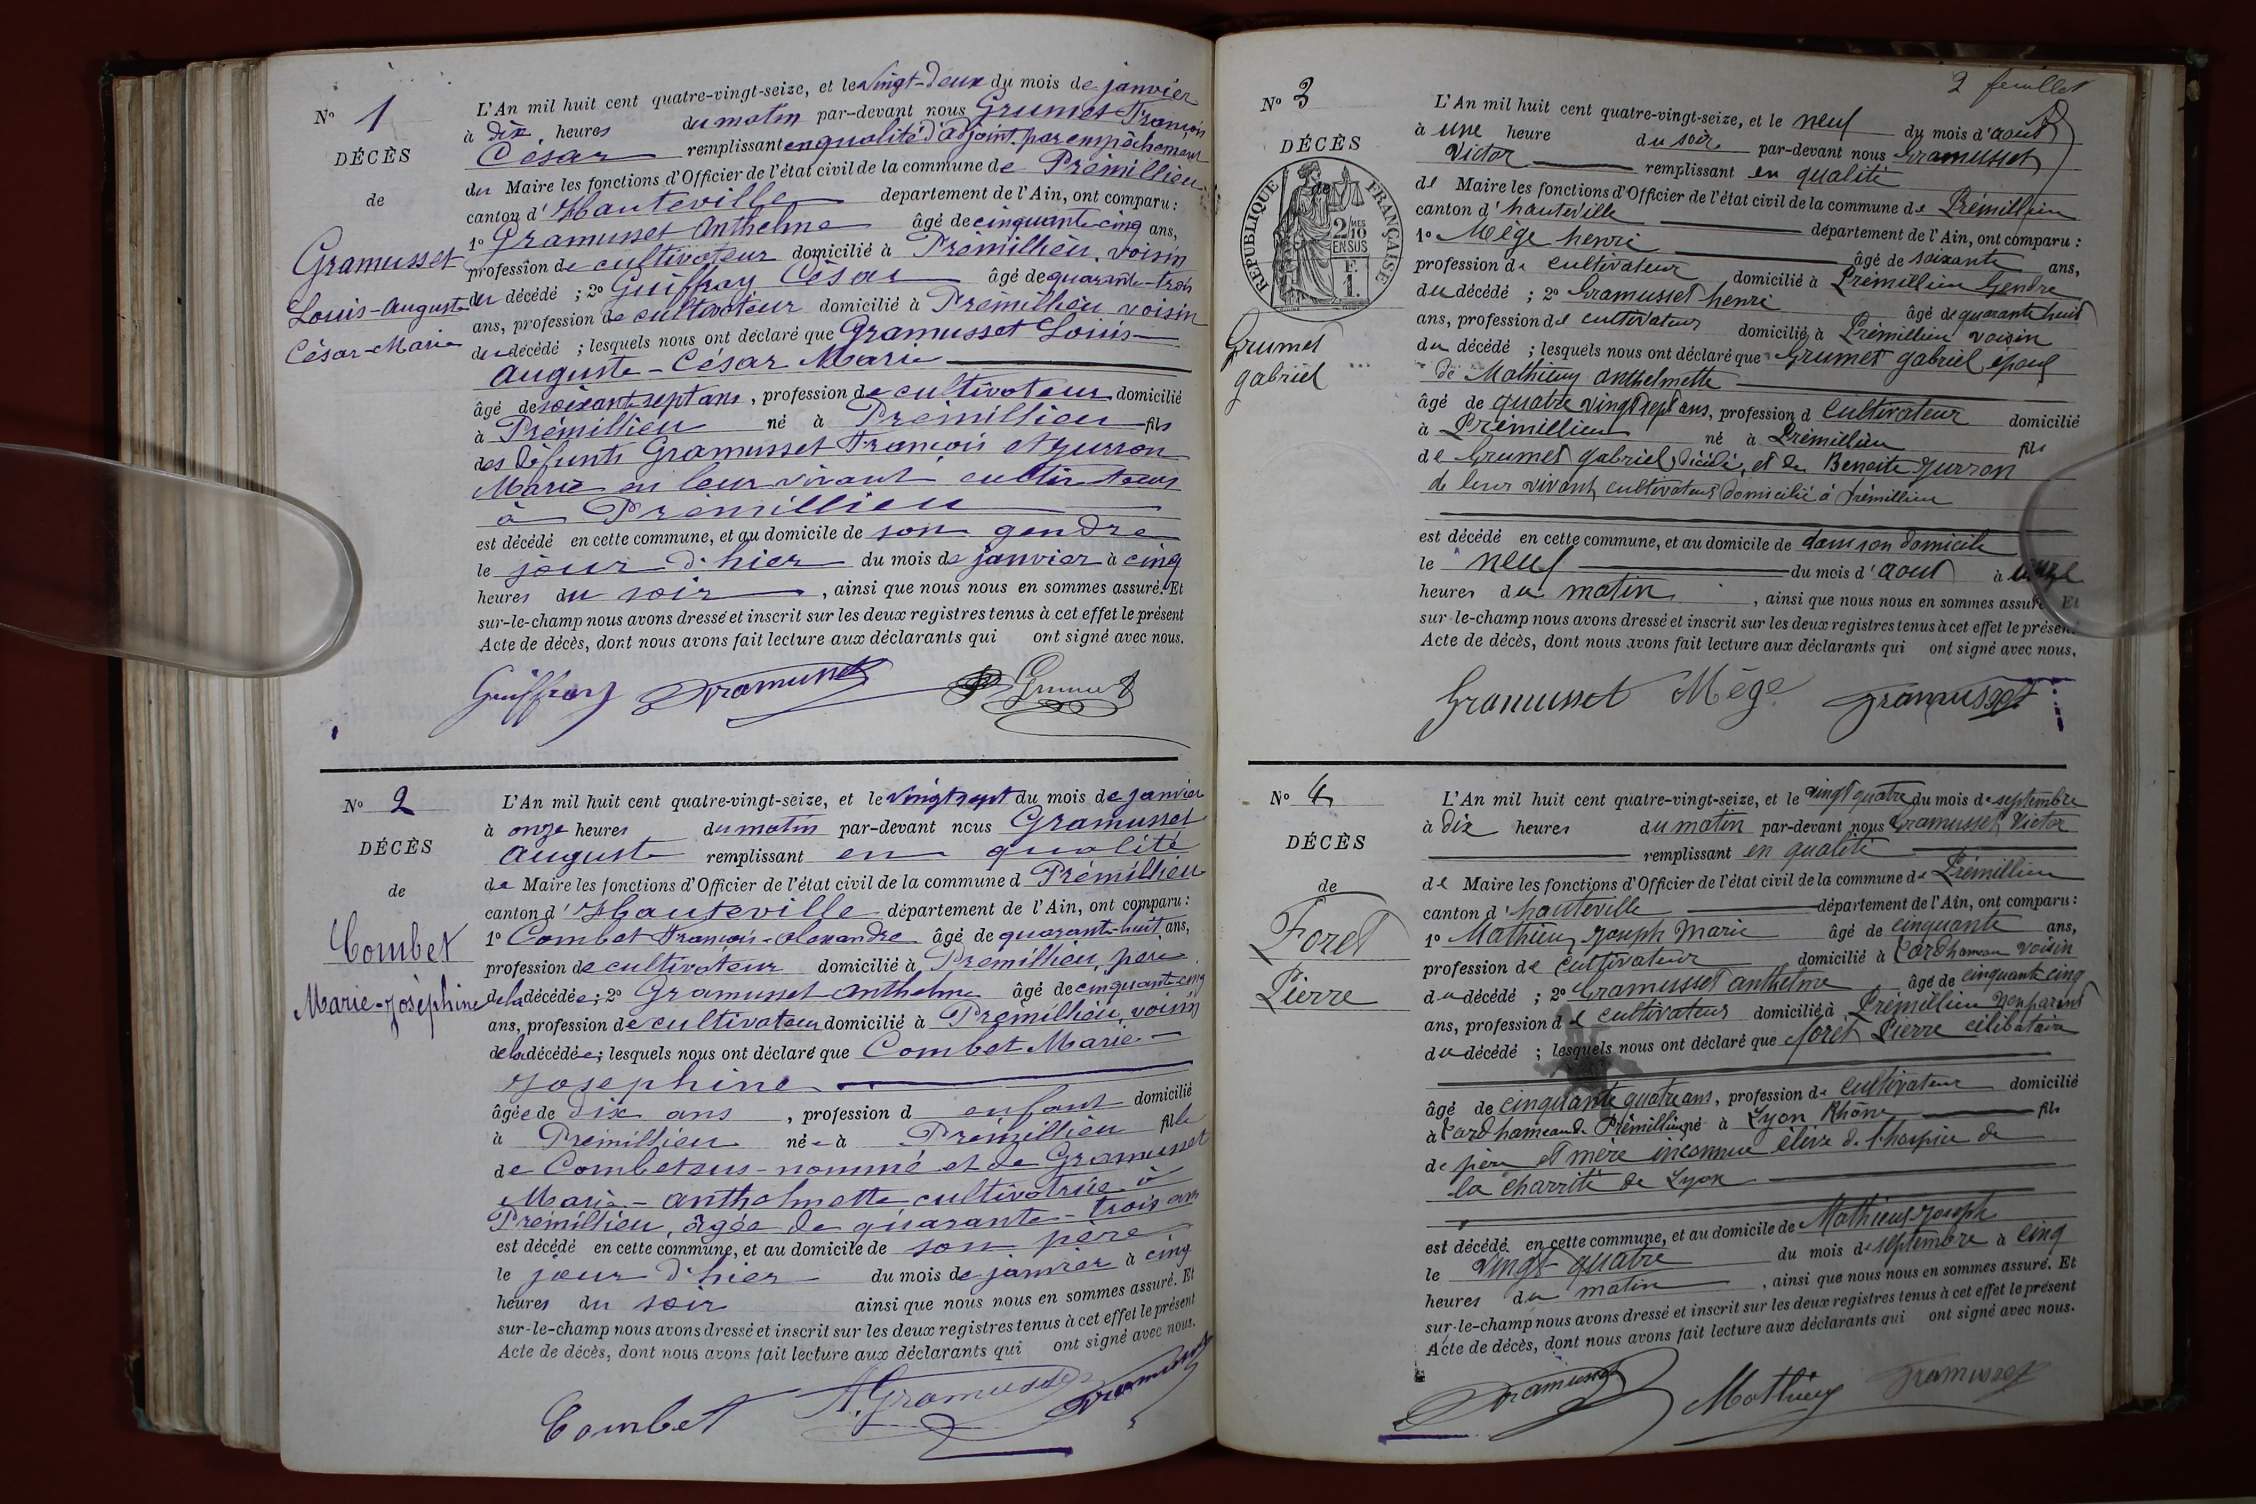 N° 1
DÉCÈS
de
Gramusset
Louis-Auguste
César-Marie
L'An mil huit cent quatre-vingt-seize, et le vingt-deux du mois de janvier
à dix heures du matin par-devant nous Grumet François
César remplissant en qualité d'adjoint par empêchement
du Maire les fonctions d'Officier de l'état civil de la commune de Prémillieu
canton d'Hauteville département de l'Ain, ont comparu :
1° Gramusset Anthelme âgé de cinquante cinq ans,
profession de cultivateur domicilié à Prémillieu, voisin
du décédé ; 2° Guiffray César âgé de quarante-trois
ans, profession de cultivateur domicilié à Prémillieu voisin
du décédé ; lesquels nous ont déclaré que Gramusset Louis-
Auguste-César Marie
âgé de soixante sept ans, profession de cultivateur domicilié
à Prémillieu né à Prémillieu fils
des défunts Gramusset François et Jurron
Marie en leur vivant cultivateurs
à Prémillieu
est décédé en cette commune, et au domicile de son gendre
le jour d'hier du mois de janvier à cinq
heures du soir, ainsi que nous nous en sommes assuré. Et
sur-le-champ nous avons dressé et inscrit sur les deux registres tenus à cet effet le présent
Acte de décès, dont nous avons fait lecture aux déclarants qui ont signé avec nous.
Guiffray Gramusset Grumet
N° 2
DÉCÈS
de
Combet
Marie-Joséphine
L'An mil huit cent quatre-vingt-seize, et le vingt sept du mois de janvier
à onze heures du matin par-devant nous Gramusset
Auguste remplissant en qualité
de Maire les fonctions d'Officier de l'état civil de la commune d Prémillieu
canton d'Hauteville département de l'Ain, ont comparu :
1° Combet François-Alexandre âgé de quarante-huit ans,
profession de cultivateur domicilié à Prémillieu, père
de la décédée ; 2° Gramusset Anthelme âgé de cinquante cinq
ans, profession de cultivateur domicilié à Prémillieu, voisin
de la décédée ; lesquels nous ont déclaré que Combet Marie-
Joséphine
âgée de dix ans, profession d enfant domicilié
à Prémillieu née à Prémillieu fille
de Combet sus-nommé et de Gramusset
Marie-Anthelmette cultivatrice à
Prémillieu, âgée de quarante-trois ans
est décédé en cette commune, et au domicile de son père
le jour d'hier du mois de janvier à cinq
heures du soir ainsi que nous nous en sommes assuré. Et
sur-le-champ nous avons dressé et inscrit sur les deux registres tenus à cet effet le présent
Acte de décès, dont nous avons fait lecture aux déclarants qui ont signé avec nous.
Combet A. Gramusset Gramusset
2 feuillet
N° 3
DÉCÈS
de
RÉPUBLIQUE FRANÇAISE
2/10 MES
EN SUS
F.
1.
Grumet
gabriel
L'An mil huit cent quatre-vingt-seize, et le neuf du mois d'août
à une heure du soir par-devant nous Gramusset
Victor remplissant en qualité
de Maire les fonctions d'Officier de l'état civil de la commune de Prémillieu
canton d'hauteville département de l'Ain, ont comparu :
1° Mège henri âgé de soixante ans,
profession de cultivateur domicilié à Prémillieu Gendre
du décédé ; 2° Gramusset henri âgé de quarante huit
ans, profession de cultivateur domicilié à Prémillieu voisin
du décédé ; lesquels nous ont déclaré que Grumet gabriel époux
de Mathieu anthelmette
âgé de quatre vingt sept ans, profession d cultivateur domicilié
à Prémillieu né à Prémillieu fils
de Grumet gabriel, décédé, et de Benoite Jurron
de leur vivant cultivateurs domicilié à Prémillieu
est décédé en cette commune, et au domicile de dans son domicile
le neuf du mois d'aout à
heures du matin, ainsi que nous nous en sommes assuré Et
sur-le-champ nous avons dressé et inscrit sur les deux registres tenus à cet effet le présent
Acte de décès, dont nous avons fait lecture aux déclarants qui ont signé avec nous.
Gramusset Mège Gramusset
N° 4
DÉCÈS
de
Foret
Pierre
L'An mil huit cent quatre-vingt-seize, et le vingt quatre du mois de septembre
à dix heures du matin par-devant nous Gramusset Victor
remplissant en qualité
de Maire les fonctions d'Officier de l'état civil de la commune de Prémillieu
canton d'hauteville département de l'Ain, ont comparu :
1° Mathieu Joseph Marie âgé de cinquante ans,
profession de cultivateur domicilié à hameau voisin
du décédé ; 2° Gramusset anthelme âgé de cinquante cinq
ans, profession de cultivateur domicilié à Prémillieu non parent
du décédé ; lesquels nous ont déclaré que foret Pierre célibataire
âgé de cinquante quatre ans, profession de cultivateur domicilié
à hameau de Prémillieu né à Lyon Rhône fils
de père et mère inconnue élève de l'hospice de
la charrité de Lyon
est décédé en cette commune, et au domicile de Mathieu Joseph
le vingt quatre du mois de septembre à cinq
heures du matin, ainsi que nous nous en sommes assuré. Et
sur-le-champ nous avons dressé et inscrit sur les deux registres tenus à cet effet le présent
Acte de décès, dont nous avons fait lecture aux déclarants qui ont signé avec nous.
Gramusset Mathieu Gramusset